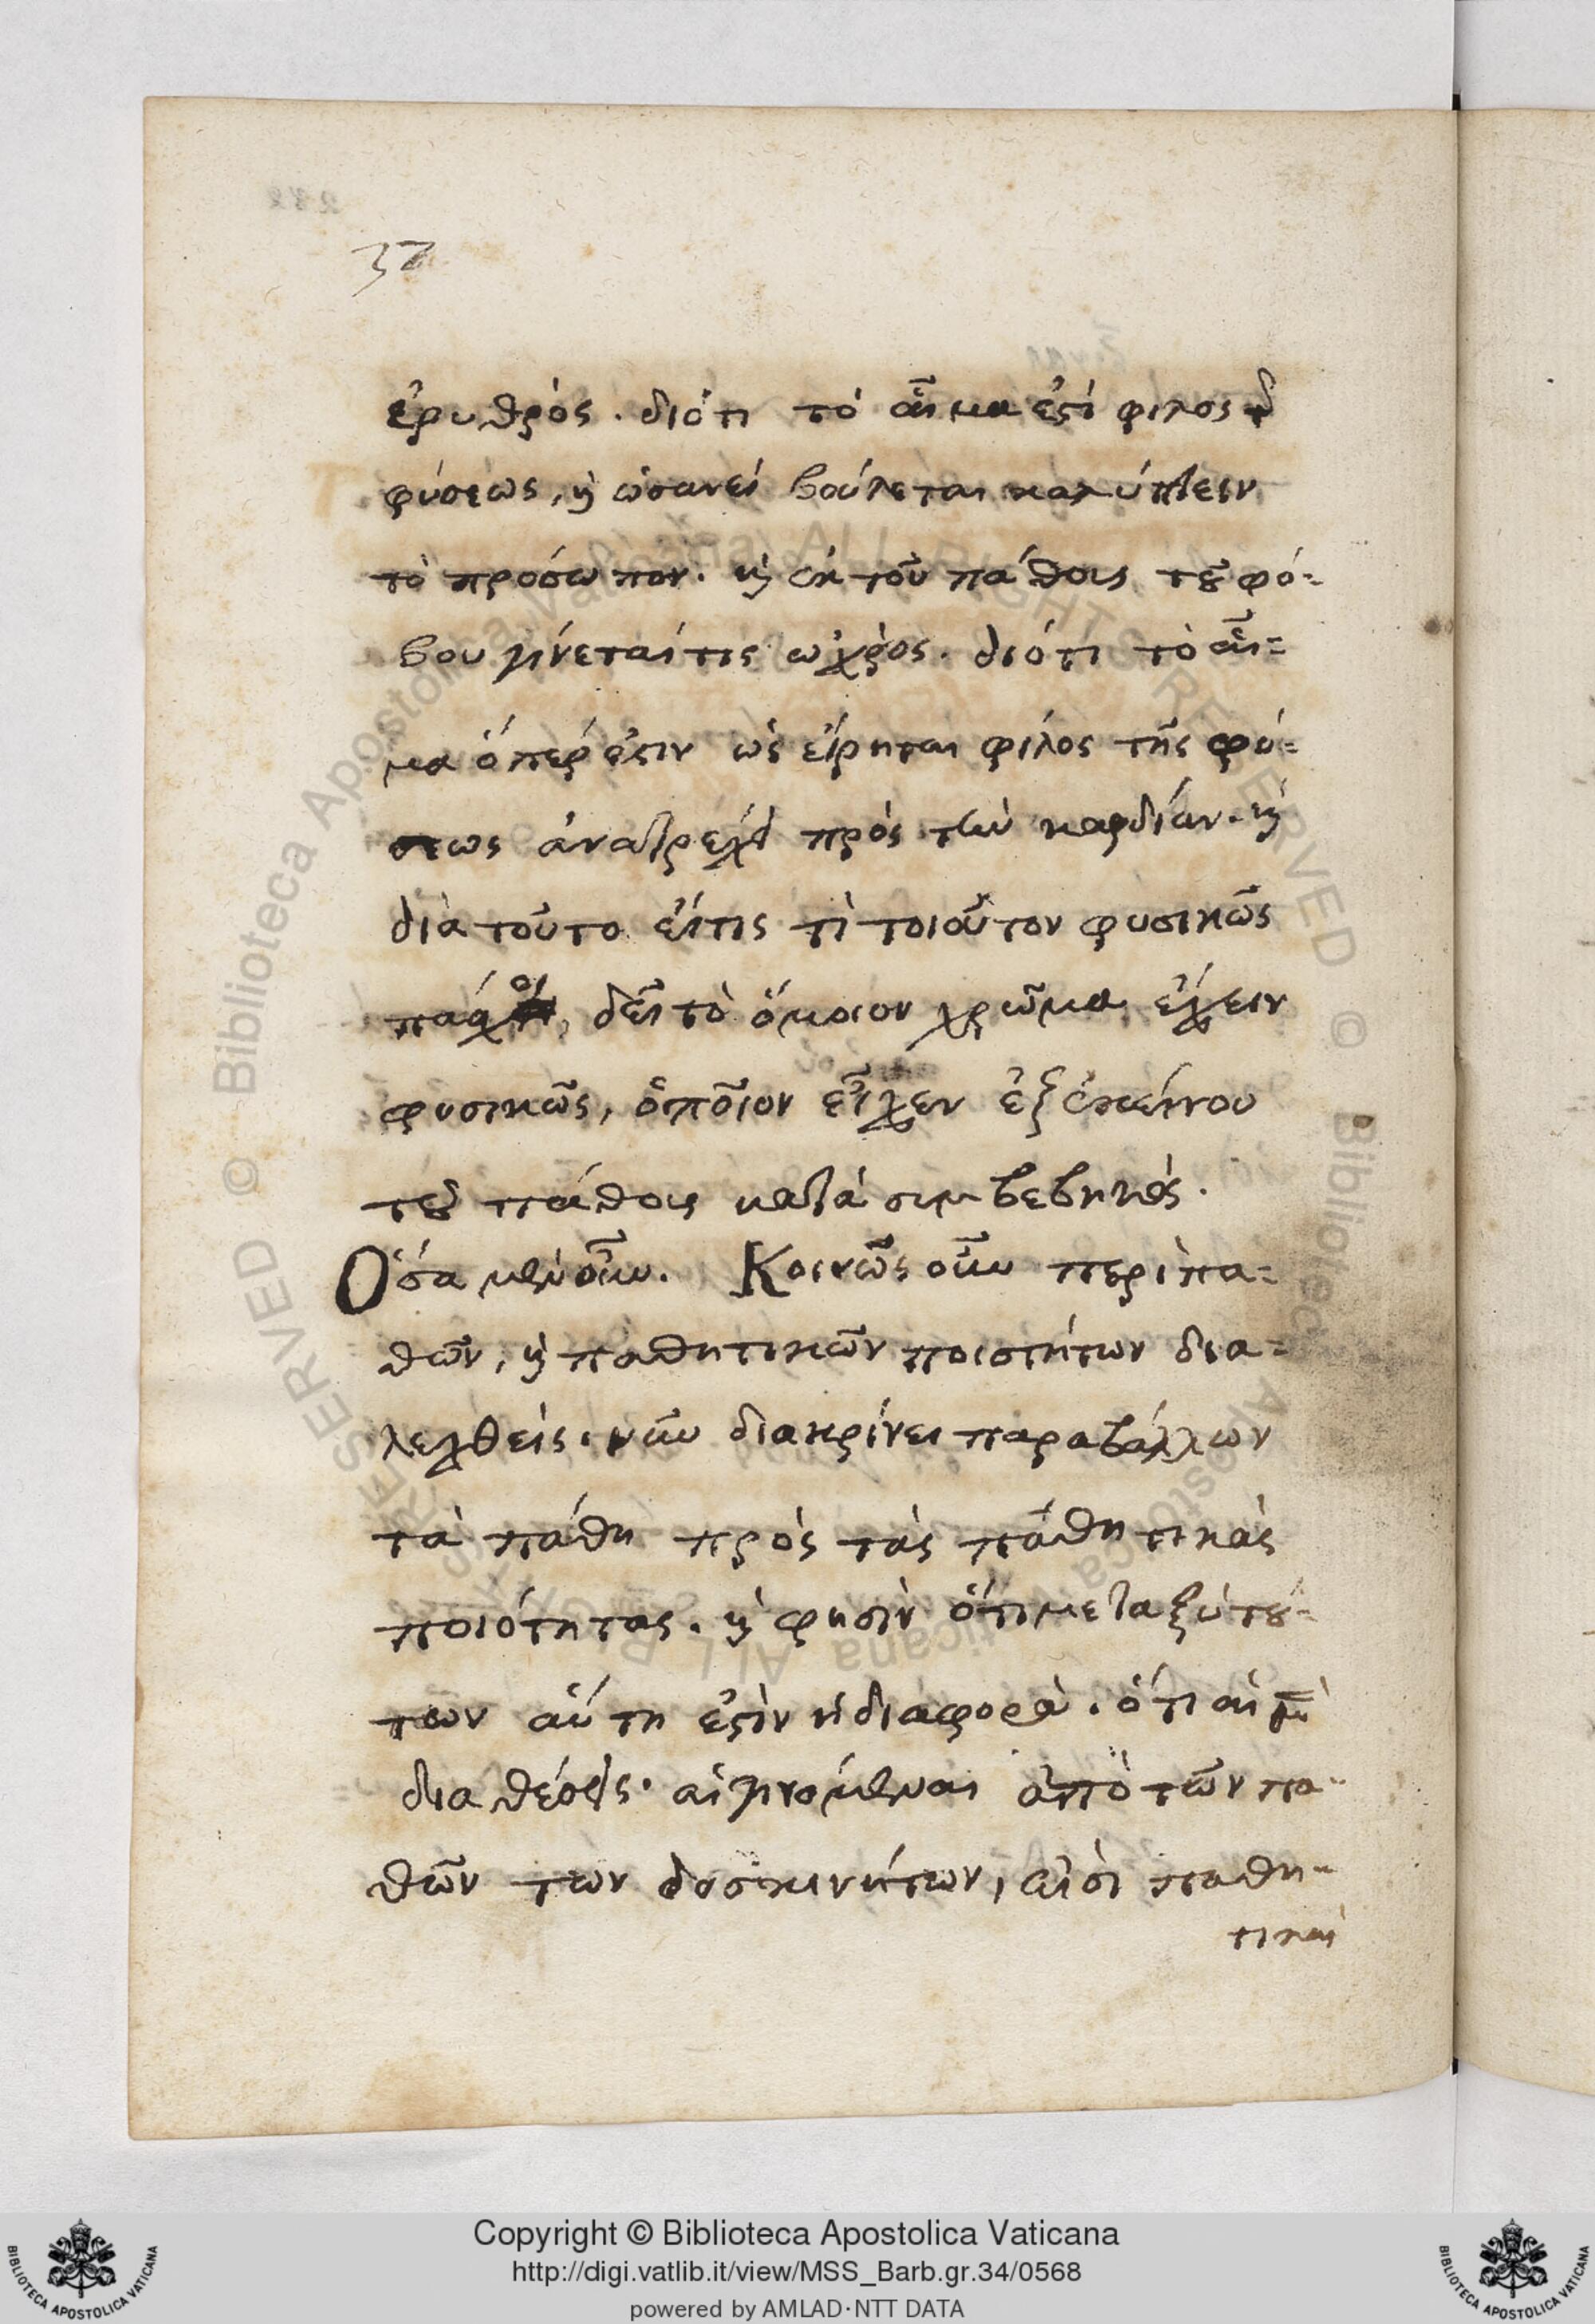 32
ἐρυθρός. διότι τὸ αἷμα ἐστὶ φίλος τῆς
φύσεως, καὶ ὡσανεὶ βούλεται καλύπτειν
τὸ πρόσωπον. καὶ ἐκ τοῦ πάθους τοῦ φό=
βου γίνεταί τις ὠχρὸς. διότι τὸ αἷ=
μα ὅπερ ἐστὶν ὡς εἴρηται φίλος τῆς φύ=
σεως ἀνατρέχει πρὸς τὴν καρδίαν. καὶ
διὰ τοῦτο εἴ τις τὶ τοιοῦτον φυσικῶς
πάσχοι, δεῖ τὸ ὅμοιον χρῶμα ἔχειν
φυσικῶς, ὁποῖον εἶχεν ἐξ ἐκείνου
τοῦ πάθους κατὰ συμβεβηκός.
Ὅσα μὲν οὖν. Κοινῶς οὖν περὶ πα=
θῶν, καὶ παθητικῶν ποιοτήτων δια=
λεχθεὶς. νῦν διακρίνει παραβάλλων
τὰ πάθη πρὸς τὰς παθητικὰς
ποιότητας. καὶ φησὶν ὅτι μεταξὺ τού=
των αὕτη ἐστὶν ἡ διαφορὰ. ὅτι αἱ μὲν
διαθέσεις. αἱ γινόμεναι ἀπὸ τῶν πα=
θῶν τῶν δυσκινήτων, εἰσὶ παθη=
τικαὶ
Copyright © Biblioteca Apostolica Vaticana
http://digi.vatlib.it/view/MSS_Barb.gr.34/0568
powered by AMLAD·NTT DATA